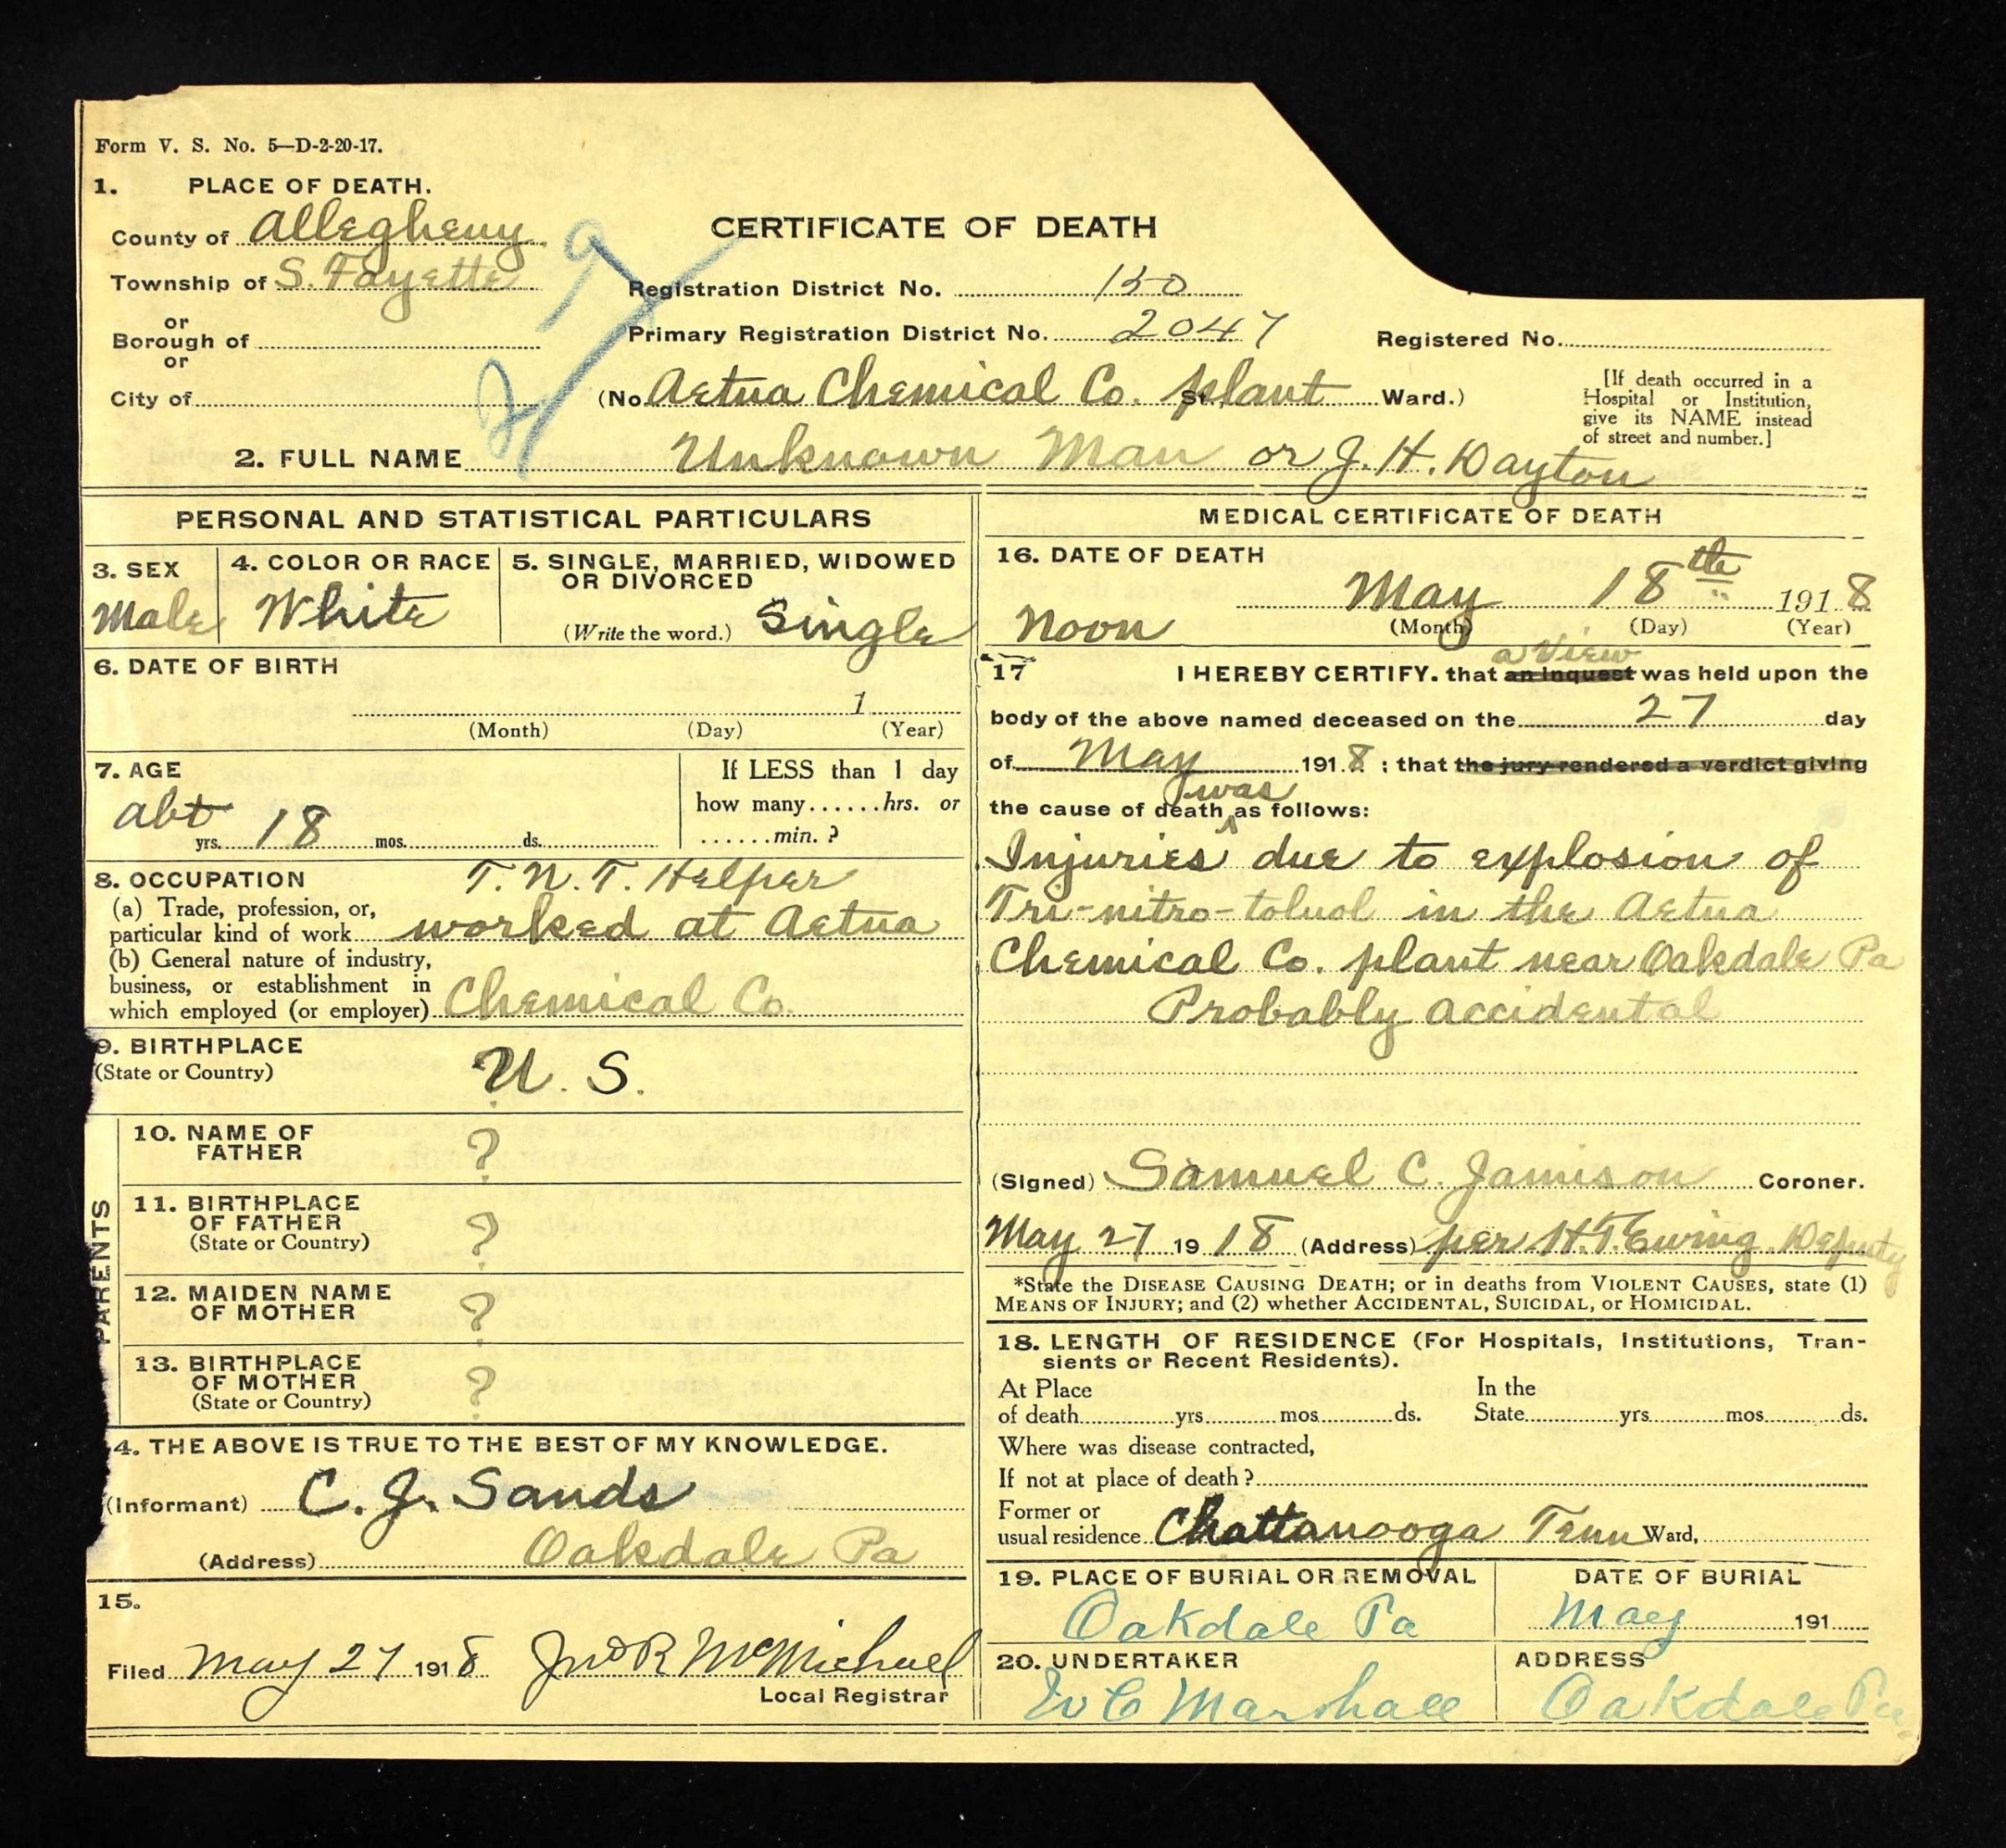 Form V. S. No. 5—D-2-20-17.
1. PLACE OF DEATH.
County of Allegheny
Township of S. Fayette
or
Borough of
or
City of
CERTIFICATE OF DEATH
Registration District No. 150
Primary Registration District No. 2047
Registered No.
(No Aetna Chemical Co. St. plant Ward.)
[If death occurred in a
Hospital or Institution,
give its NAME instead
of street and number.]
2. FULL NAME Unknown Man or J. H. Dayton
PERSONAL AND STATISTICAL PARTICULARS
3. SEX
Male
4. COLOR OR RACE
White
5. SINGLE, MARRIED, WIDOWED
OR DIVORCED
(Write the word.) Single
6. DATE OF BIRTH
1
(Month) (Day) (Year)
7. AGE
abt
yrs. 18 mos. ds.
If LESS than 1 day
how many......hrs. or
......min. ?
8. OCCUPATION T. N. T. Helper
(a) Trade, profession, or,
particular kind of work worked at Aetna
(b) General nature of industry,
business, or establishment in
which employed (or employer) Chemical Co.
9. BIRTHPLACE
(State or Country) U. S.
PARENTS
10. NAME OF
FATHER ?
11. BIRTHPLACE
OF FATHER
(State or Country) ?
12. MAIDEN NAME
OF MOTHER ?
13. BIRTHPLACE
OF MOTHER
(State or Country) ?
4. THE ABOVE IS TRUE TO THE BEST OF MY KNOWLEDGE.
(Informant) C. J. Sands
(Address) Oakdale Pa
15.
Filed May 27 1918 Jno R McMichael
Local Registrar
MEDICAL CERTIFICATE OF DEATH
16. DATE OF DEATH
May 18th 1918
Noon (Month) (Day) (Year)
a View
17 I HEREBY CERTIFY. that an inquest was held upon the
body of the above named deceased on the 27 day
of May 1918 ; that the jury rendered a verdict giving
was
the cause of death as follows:
Injuries due to explosion of
Tri-nitro-toluol in the Aetna
Chemical Co. plant near Oakdale Pa
Probably accidental
(Signed) Samuel C. Jamison Coroner.
May 27 1918 (Address) per H. T. Ewing. Deputy
*State the DISEASE CAUSING DEATH; or in deaths from VIOLENT CAUSES, state (1)
MEANS OF INJURY; and (2) whether ACCIDENTAL, SUICIDAL, or HOMICIDAL.
18. LENGTH OF RESIDENCE (For Hospitals, Institutions, Tran-
sients or Recent Residents).
At Place In the
of death yrs. mos. ds. State yrs. mos. ds.
Where was disease contracted,
If not at place of death ?
Former or
usual residence Chattanooga Tenn Ward,
19. PLACE OF BURIAL OR REMOVAL
Oakdale Pa
DATE OF BURIAL
May 191
20. UNDERTAKER
W C Marshall
ADDRESS
Oakdale Pa